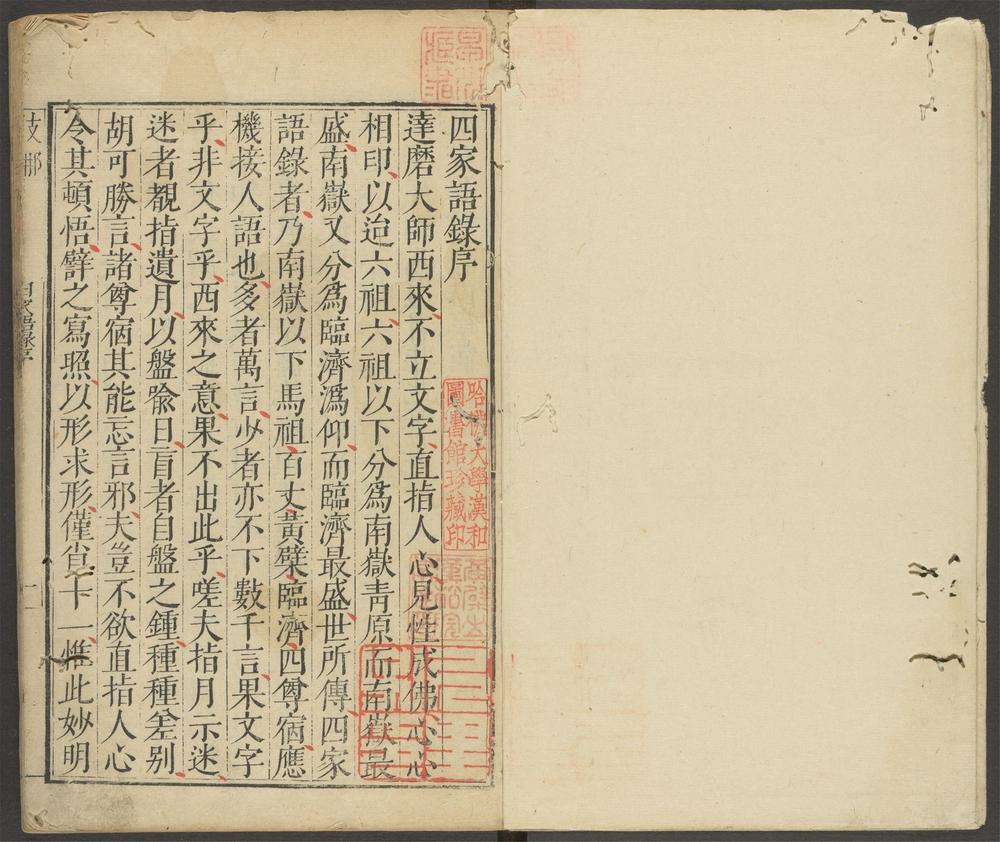 四家語錄序
達磨大師西來不立文字直指人心見性成佛心心
相印以迨六祖六祖以下分爲南嶽靑原而南嶽最
盛南嶽又分爲臨濟潙仰而臨濟最盛世所傳四家
語錄者乃南嶽以下馬祖百丈黃檗臨濟四尊宿應
機接人語也多者萬言少者亦不下數千言果文字
乎非文字乎西來之意果不出此乎嗟夫指月示迷
迷者覩指遺月以盤喩日盲者自盤之鍾種種差别
胡可勝言諸尊宿其能忘言邪夫豈不欲直指人心
令其頓悟譬之寫照以形求形僅省十一惟此妙明
支那
四家語錄序
哈佛大學漢和
圖書館珍藏印